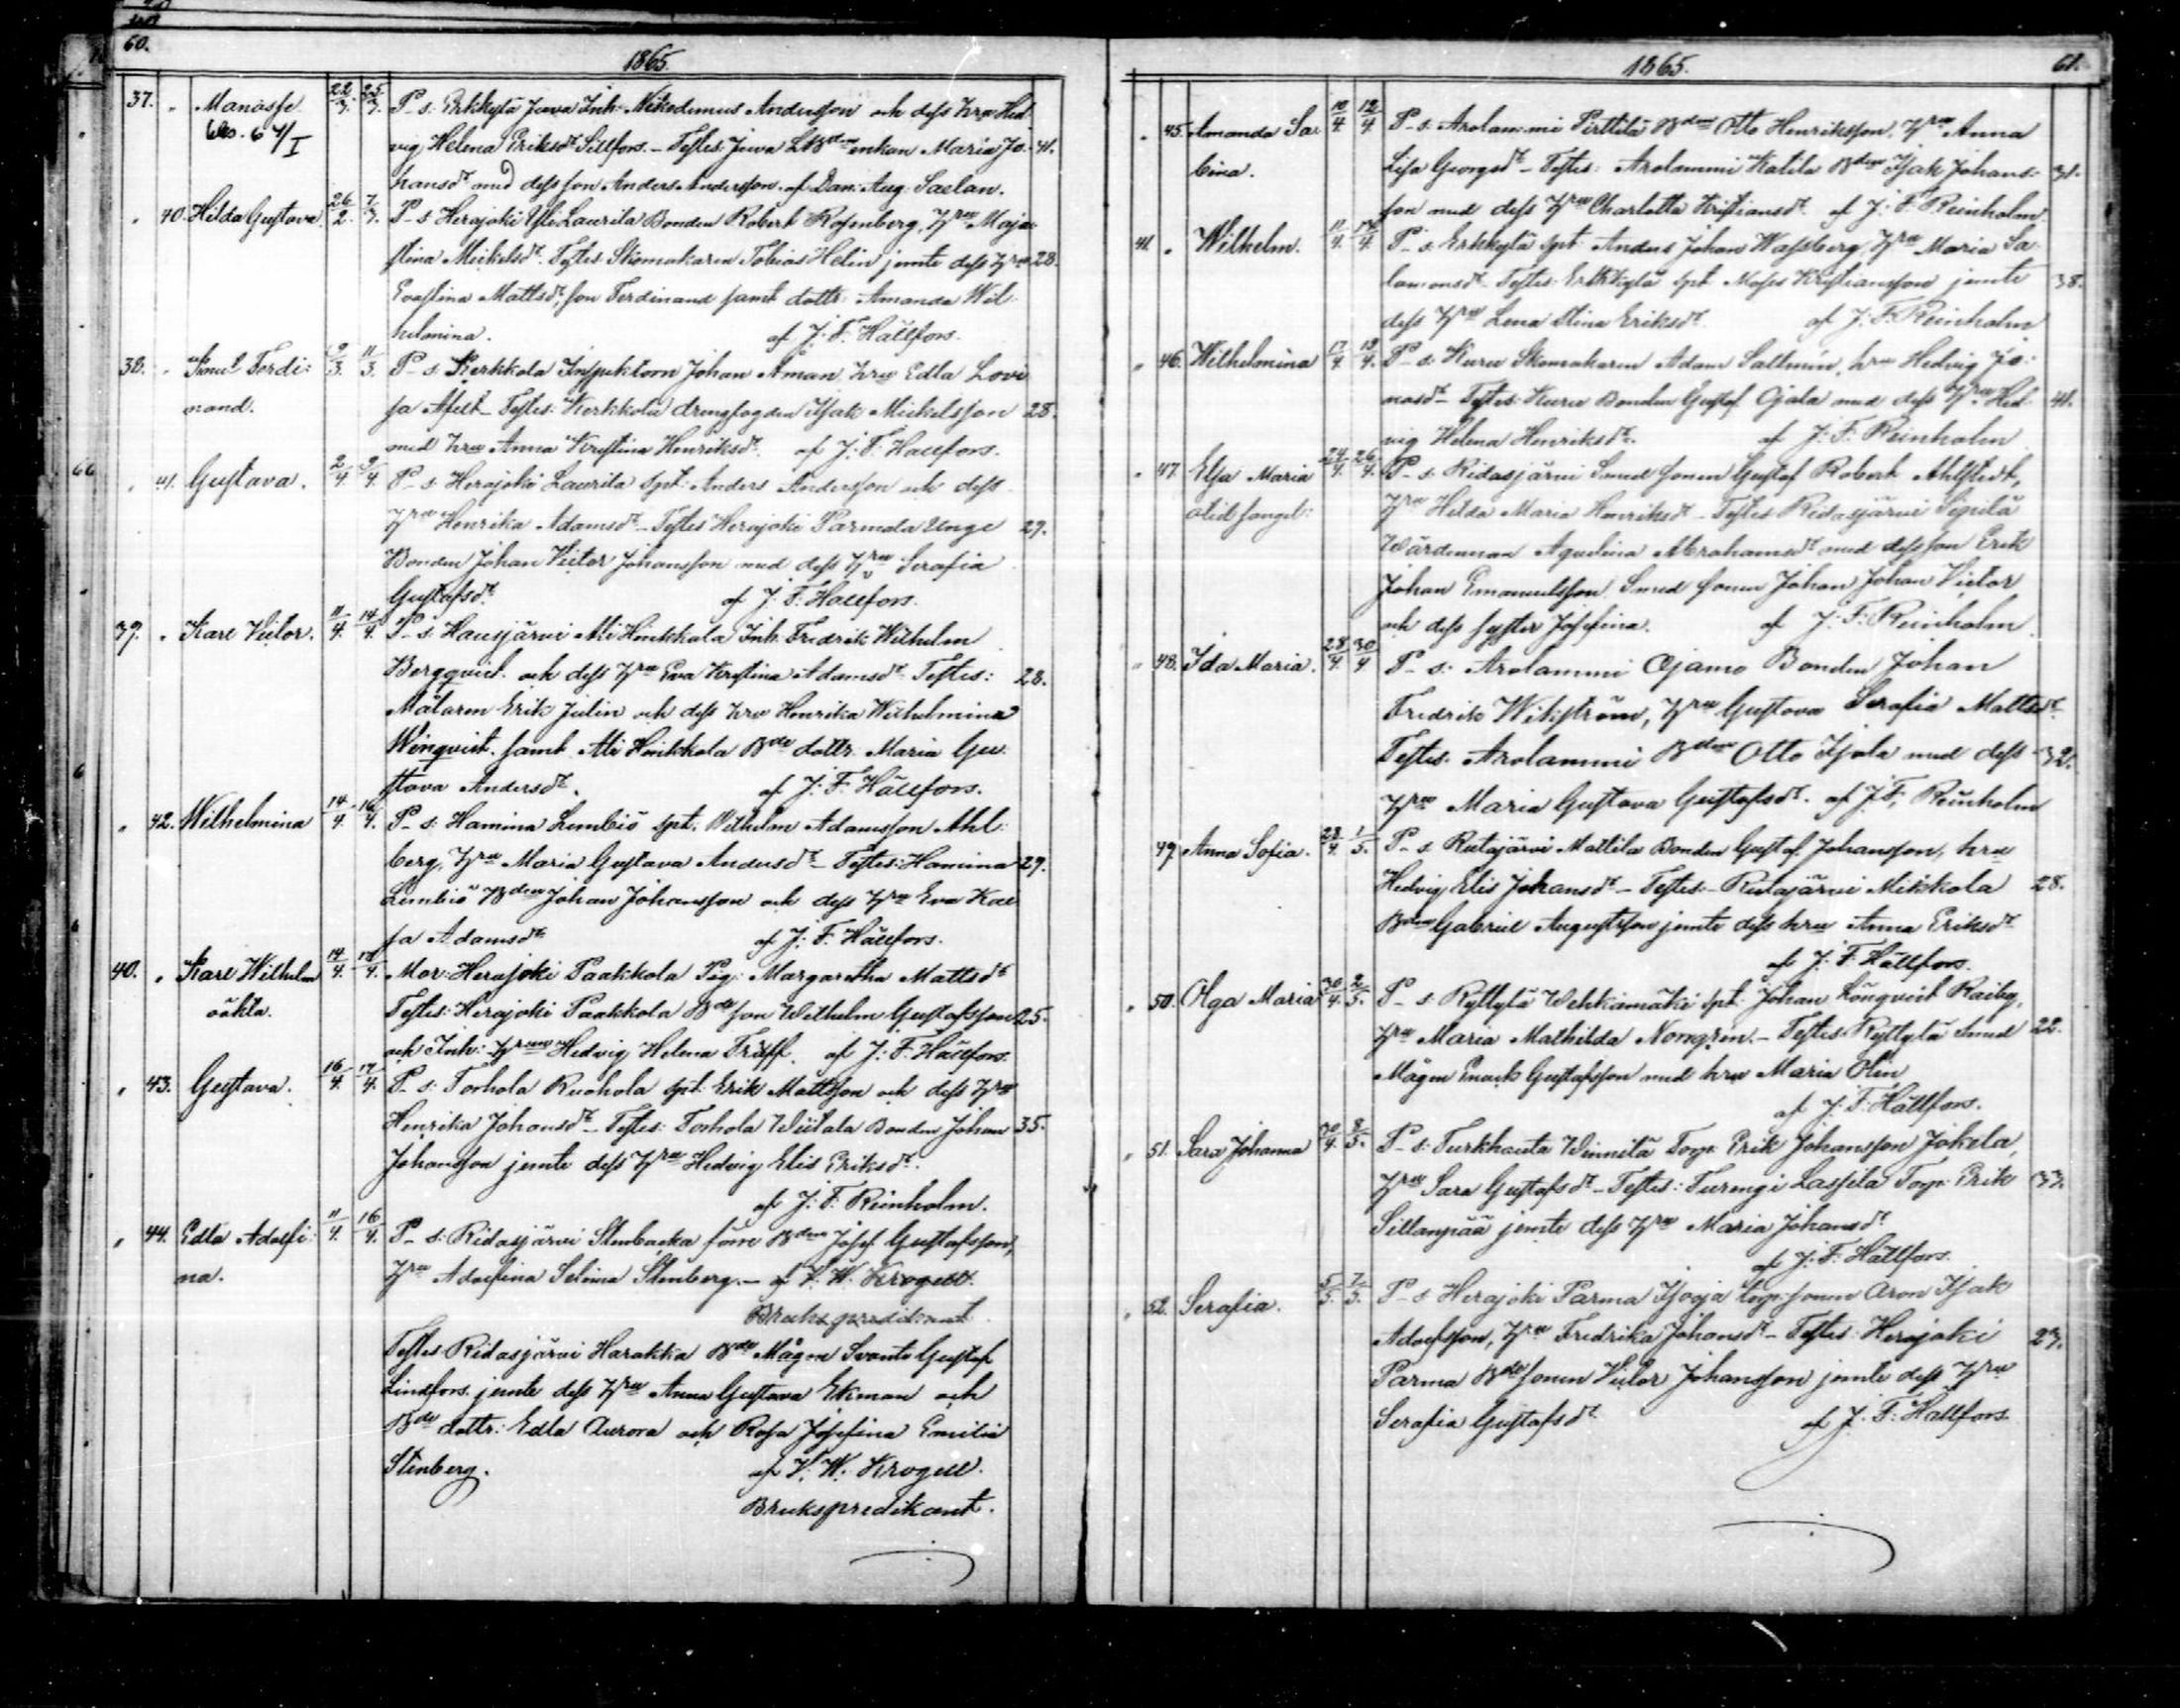 60.
1865.
37. " Manasse 22/3. 25/3. P_ s: Erkkylä Juva Inh: Nikodemus Andersson och dess hru Hed-
vig Helena Eriksdr Sillfors. – Testes: Juva Maria Jo- 41.
hansdr med dess son Anders Andersson. af Dan: Aug: Saelan.
" 40. Hilda Gustava 26/2. 7/3. P_ s: Herajoki Yli Laurila Bonden Robert Rosenberg, Hru Maja
stina Mickelsdr. Testes Skomakaren Tobias Helin jemte dess Hru 28.
Evastina Mattsdr, son Ferdinand samt dottr: Amanda Wil-
helmina. af J: F: Hällfors.
38. " Ferdi: 9/3. 11/3. P_ s: Kerkkola Inspektorn Johan Åman, hru Edla Lovi
nand. sa – Testes: Kerkkola drengfogden Isak Mickelsson 28.
med hru Anna Kristina Henriksdr. af J: F: Hällfors.
" 41. Gustava. 2/4. 9/4. P_ s: Herajoki Laurila spt: Anders Andersson och dess
Hru Henrika Adamsdr – Testes Herajoki Parmala Unge 29.
Bonden Johan Victor Johansson med dess Hru Serafia
Gustafsdr. af J: F: Hällfors.
39. " Karl Victor. 11/4. 14/4. P_ s: Hausjärvi Ali Hinkkala Inh. Fredrik Wilhelm
Bergqvist och dess Hru Eva Kristina Adamsdr. Testes: 28.
Målaren Erik Julin och dess hru Henrika Wilhelmina
Winqvist. samt Ali Hinkkala Bde dottr: Maria Gu-
stava Andersdr. af J: F: Hällfors.
" 42. Wilhelmina 14/4. 16/4. P_ s: Hamina Lembiö spt. Wilhelm Adamsson Ahl-
berg, Hru Maria Gustava Andersdr – Testes: Hamina 29.
Lembiö Bden Johan Johansson och dess Hru Eva Kai
sa Adamsdr af J: F: Hällfors.
40. " Karl Wilhelm 14/4. 18/4. Mor: Herajoki Paakkola Pig: Margaretha Mattsdr
oäkta. Testes: Herajoki Paakkola Bde son Wilhelm Gustafsson 25.
och Inh: Hrun Hedvig Helena Träff. af J: F: Hällfors.
" 43. Gustava. 16/4. 17/4. P_ s: Torhola Ruohola spt: Erik Mattsson och dess Hru
Henrika Johansdr – Testes: Torhola Wiitala Bonden Johan 35.
Johansson jemte dess Hru Hedvig Elis Eriksdr.
af J: F: Reinholm.
" 44. Edla Adolfi: 11/4. 16/4. P_ s: Ridasjärvi Stenbacka förre Bden Josef Gustafsson,
na. Hru Adolfina Selima Stenberg. – af K. W. Krogell.
Brukspredikant
Testes Ridasjärvi Harakka Bde Mågen Svante Gustaf
Lindfors jemte dess Hru Anna Gustava Ekman och
Bde dottr: Edla Aurora och Rosa Josefina Emilia
Stenberg. af K. W. Krogell.
Brukspredikant.
1865. 61.
" 45. Amanda Sa- 10/4. 12/4. P_ s: Arolammi Pirttilä Bden Otto Henriksson, Hru Anna
bina. Lisa Georgsdr – Testes: Arolammi Katila Bden Isak Johans- 31.
son med dess Hru Charlotta Kristiansdr. af J: F: Reinholm
41. " Wilhelm. 11/4. 17/4. P_ s: Erkkylä spt: Anders Johan Wassberg, Hru Maria Sa-
lomonsdr – Testes: Erkkylä spt: Moses Kristiansson jemte 38.
dess Hru Lena Stina Eriksdr. af J: F: Reinholm
" 46. Wilhelmina 17/4. 19/4. P_ s: Kuru Skomakaren Adam Sallmén, hru Hedvig Jo-
nasdr – Testes: Kuru Bonden Gustaf Ojala med dess Hru Hed- 41.
vig Helena Henriksdr. af J: F: Reinholm
" 47. Elsa Maria 24/4. 26/4. P_ s: Ridasjärvi Smed sonen Gustaf Robert Ahlstedt,
Hru Hilda Maria Henriksdr – Testes Ridasjärvi Sipilä
Wärdinnan Aqvilina Abrahamsdr med dess son Erik
Johan Emanuelsson, Smed sonen Johan Johan Victor
och dess syster Josefina. af J: F: Reinholm
" 48. Ida Maria. 28/4. 30/4. P_ s: Arolammi Ojamo Bonden Johan
Fredrik Wikström, Hru Gustava Serafia Mattsdr.
Testes. Arolammi Bden Otto Isola med dess 32.
Hru Maria Gustava Gustafsdr. af J: F: Reinholm
49. Anna Sofia. 28/4. 1/5. P_ s: Rutajärvi Mattila Bonden Gustaf Johansson, hru
Hedvig Elis Johansdr – Testes: Rutajärvi Mikkola 28.
Bden Gabriel Augustsson jemte dess hru Anna Eriksdr
af J: F: Hällfors.
" 50. Olga Maria 30/4. 2/5. P_ s: Ryttylä Wehkamäki spt: Johan Lönqvist
Hru Maria Mathilda Norrgren. – Testes: Ryttylä Smed 22.
Mågen Enock Gustafsson med hru Maria Olin
af J: F: Hällfors.
" 51. Sara Johanna 30/4. 8/5. P_ s: Turkhauta Winnilä Torp: Erik Johansson Jokela,
Hru Sara Gustafsdr – Testes: Turengi Lassila Torp: Erik 37.
Sillanpää jemte dess Hru Maria Johansdr
af J: F: Hällfors.
" 52. Serafia. 5/5. 7/5. P_ s: Herajoki Parma Isoja torp: sonen Aron Isak
Adolfsson, Hru Fredrika Johansdr – Testes: Herajoki 27.
Parma Bde sonen Victor Johansson jemte dess Hru
Serafia Gustafsdr. af J: F: Hällfors